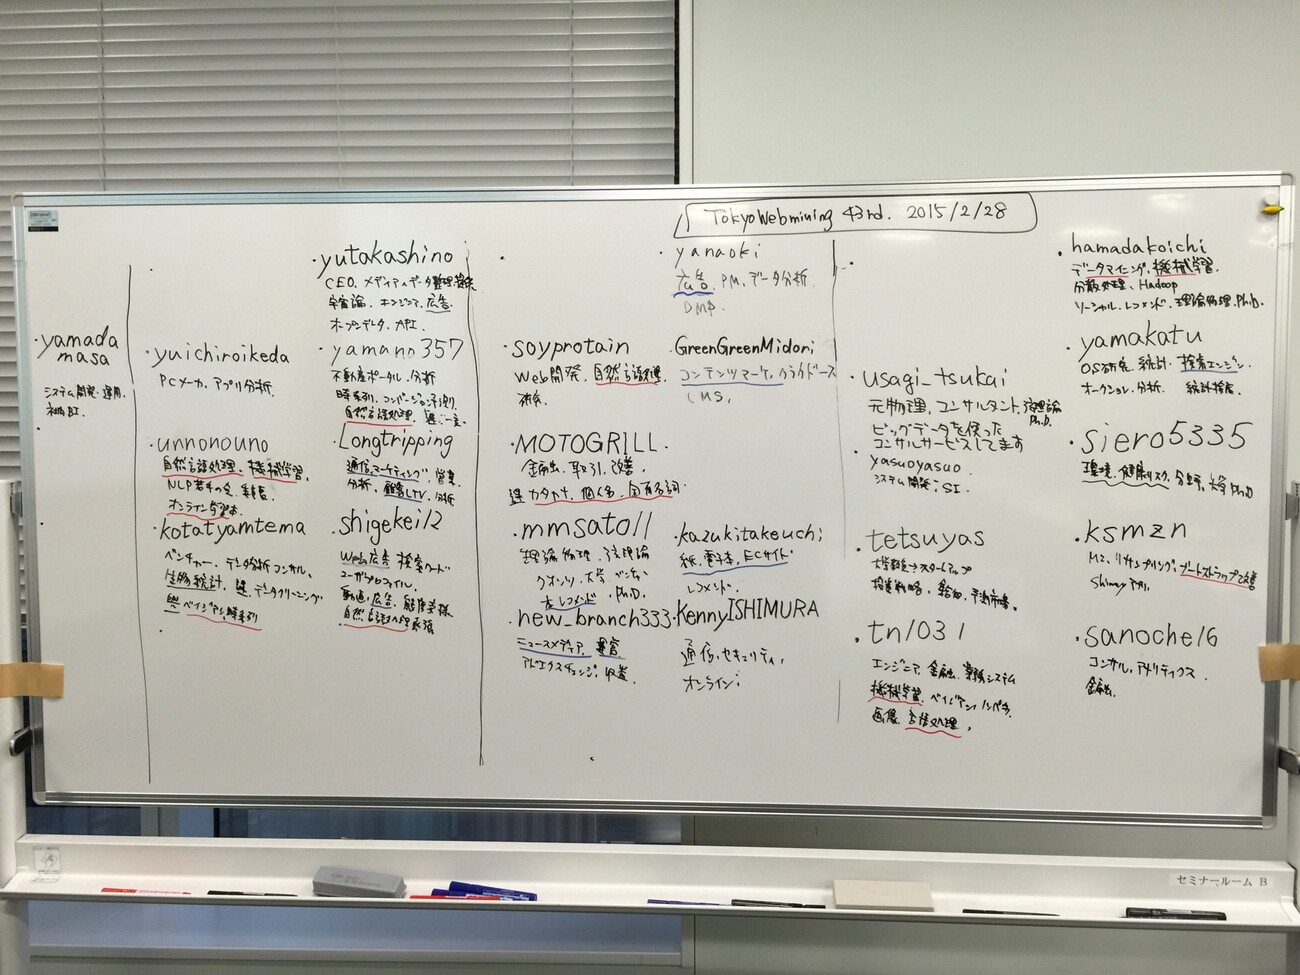 TokyoWebmining 43rd. 2015/2/28
yamada
masa
システム開発・運用.
yuichiroikeda
PCメーカ, アプリ分析.
unnonouno
自然言語処理, 機械学習,
NLP若手の会,
オンライン学習本
kotatyamtema
ベンチャー, データ分析コンサル,
生物統計, データクリーニング
ベイジアン, 時系列
yutakashino
CEO, メディア,
宇宙論, エンジニア, 広告,
オープンデータ, API,
yamano357
不動産ポータル, 分析
時系列, コンバージョン予測,
自然言語処理,
Longtripping
通信, マーケティング, 営業
分析, 顧客LTV, 分析
shigekei12
Web広告 検索ワード
ユーザプロファイル,
動画, 広告, 態度変様
自然言語処理
soyprotain
Web開発, 自然言語処理
MOTOGRILL.
金融, 取引, 改善,
カタカナ, 個人名, 固有名詞
mmsato11
理論物理,
クオンツ, 大学, ベンチャ
レコメンド, Ph.D.
new_branch333
ニュースメディア, 運営,
アドエクスチェンジ, 収益,
yanaoki
広告, PM, データ分析
DMP
GreenGreenMidori
コンテンツマーケ, クラウドソース
CMS,
kazukitakeuchi
紙, 電子本, ECサイト
レコメンド.
KennyISHIMURA
通信, セキュリティ,
オンライン
usagi_tsukai
元物理, コンサルタント,
Ph.D.
ビッグデータを使った
コンサルサービスしてます
yasuoyasuo
システム開発; SI.
tetsuyas
大学教員→スタートアップ
投資戦略,
tn1031
エンジニア, 金融, 業務システム
機械学習, ベイジアン, ノンパラ,
画像, 言語処理,
hamadakoichi
データマイニング, 機械学習.
分散処理, Hadoop
ソーシャル, レコメンド, 理論物理, Ph.D.
yamakatu
統計, 検索エンジン,
オークション, 分析.
siero5335
環境, 健康リスク, 大学, Ph.D
ksmzn
リサンプリング, ブートストラップ改善
Shinyアプリ,
sanoche16
コンサル, アナリティクス,
金融.
セミナールーム B